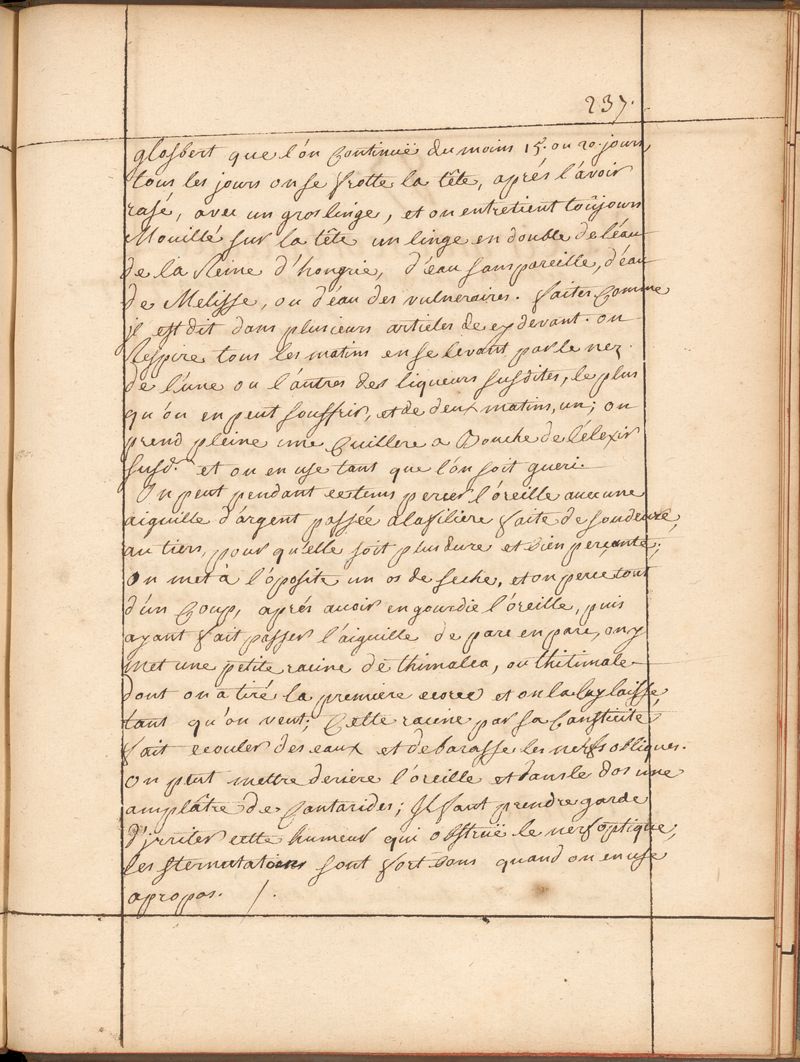 237.
glosbert que l'ón Continuë du moins 15. ou 20. jours,
tous les jours on se frotte la tête, aprés l'ávoir
rasé, avec un gros linge, et on entretient toûjours
Moüillé sur la tête un linge en double de l'éau
de la Reine d'hongrie, d'éau sans pareille, d'éau
de Melisse, ou d'éau des vulneraires. faites Comme
jl est dit dans plusieurs articles de cy devant. on
Respire tous les matins en se levant par le nez
de l'une ou l'autres des liqueurs susdites, le plus
qu'on en peut souffrir, et de deux matins, un; on
prend pleine une Cuillere a Bouche de l'élexir
susd. et on en use tant que l'ón soit gueri.
On peut pendant ce tems percer l'óreille avec une
aiguille d'argent passée a la filiere faite de soudeure
au tiers, pour qu'elle soit plus dure et bien perçante;
on met à l'óposite un os de seche, et on perce tout
d'ún Coup, aprés avoir engourdie l'óreille, puis
ayant fait passer l'aiguille de part en part, on y
met une petite racine de thimalea, ou thitimale
dont on a tiré la premiere ecorce et on la luy laisse
tant qu'on veut; Cette racine par sa Causticité
fait ecouler des eaux et debarasse les nerfs obliques.
on peut mettre deriere l'oreille et dans le dos une
amplâtre de Cantarides; Il faut prendre garde
d'jrriter cette humeur qui obstruë le nerf optique,
les sternutatoires sont fort bons quand on en use
apropos. /.